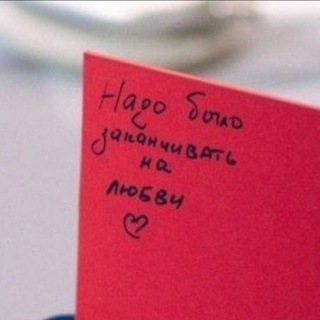 Надо было
заканчивать
на
любви
♡